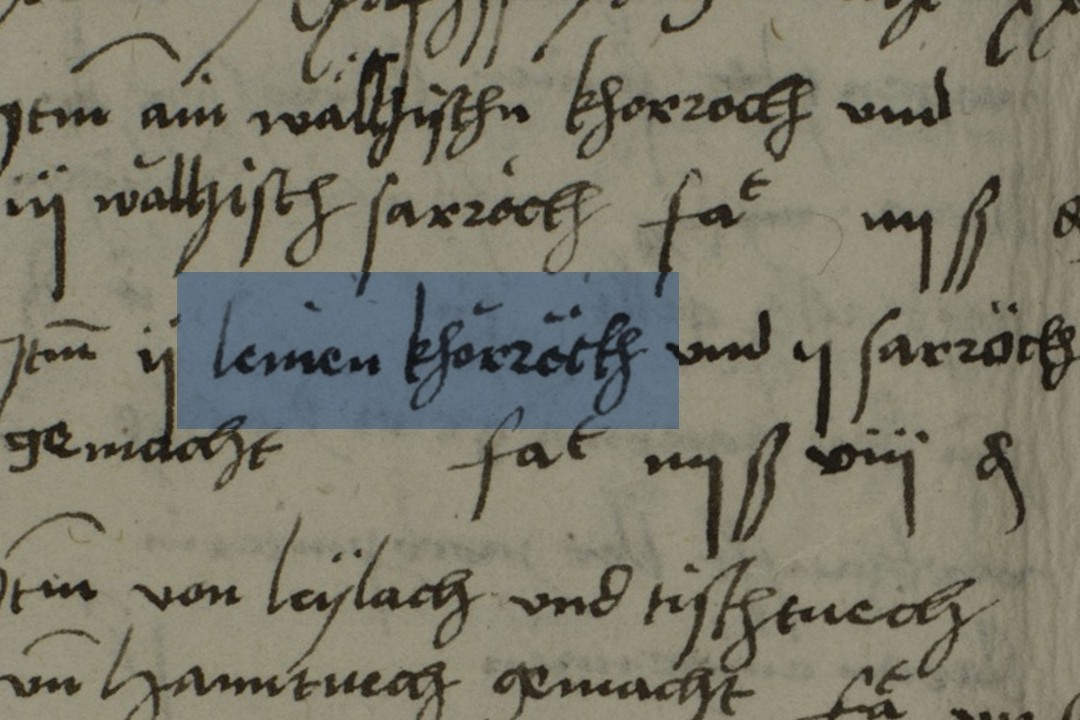 Itm ain wälhischn khorrockh vnd
iii wälhisch sarröckh fat iiij ß
Itm ij leinen khorröckh vnd ij sarröckh
gemacht fat iiij ß viii ₰
Itm von leylach vnd tischtuech
vn hanntuech gemacht fat